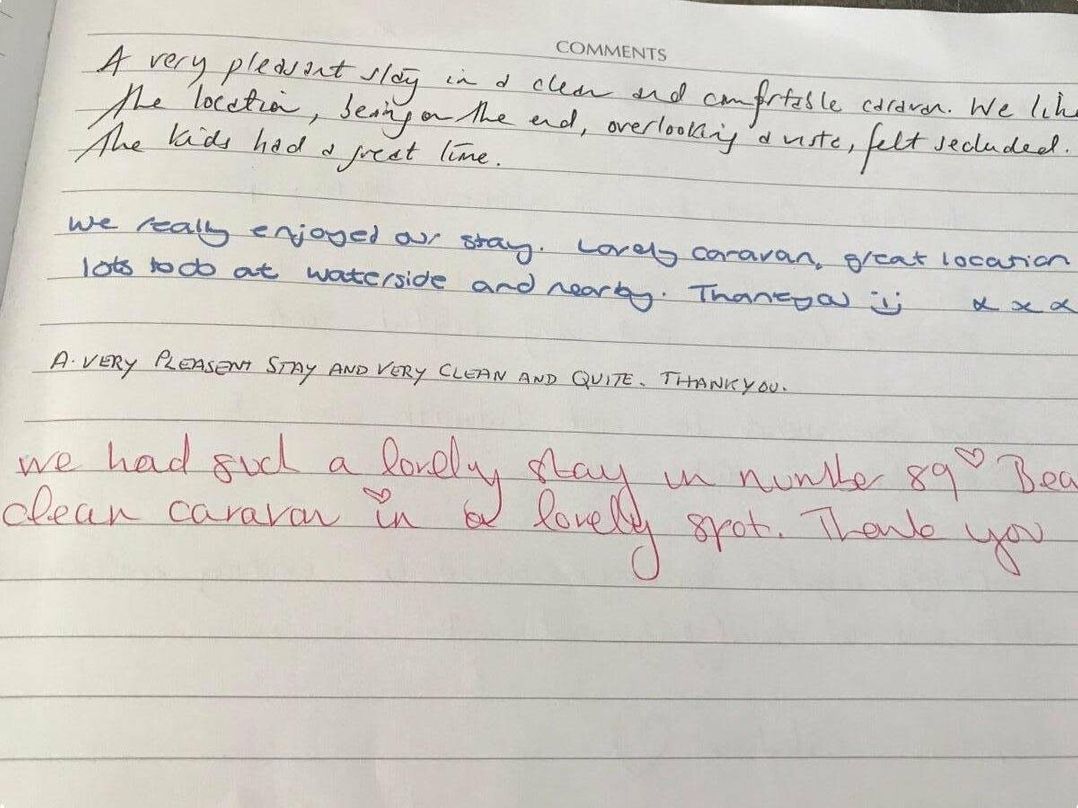 COMMENTS
A very pleasant stay in a clean and comfortable caravan. We like
the location, being on the end, overlooking a vista, felt secluded.
The kids had a great time.
We really enjoyed our stay. Lovely caravan, great location
lots to do at waterside and nearby. Thankyou :) x x x
A. VERY PLEASENT STAY AND VERY CLEAN AND QUITE. THANKYOU.
we had such a lovely stay in number 89 ♡ Bea
clean caravan in a lovely spot. Thank you